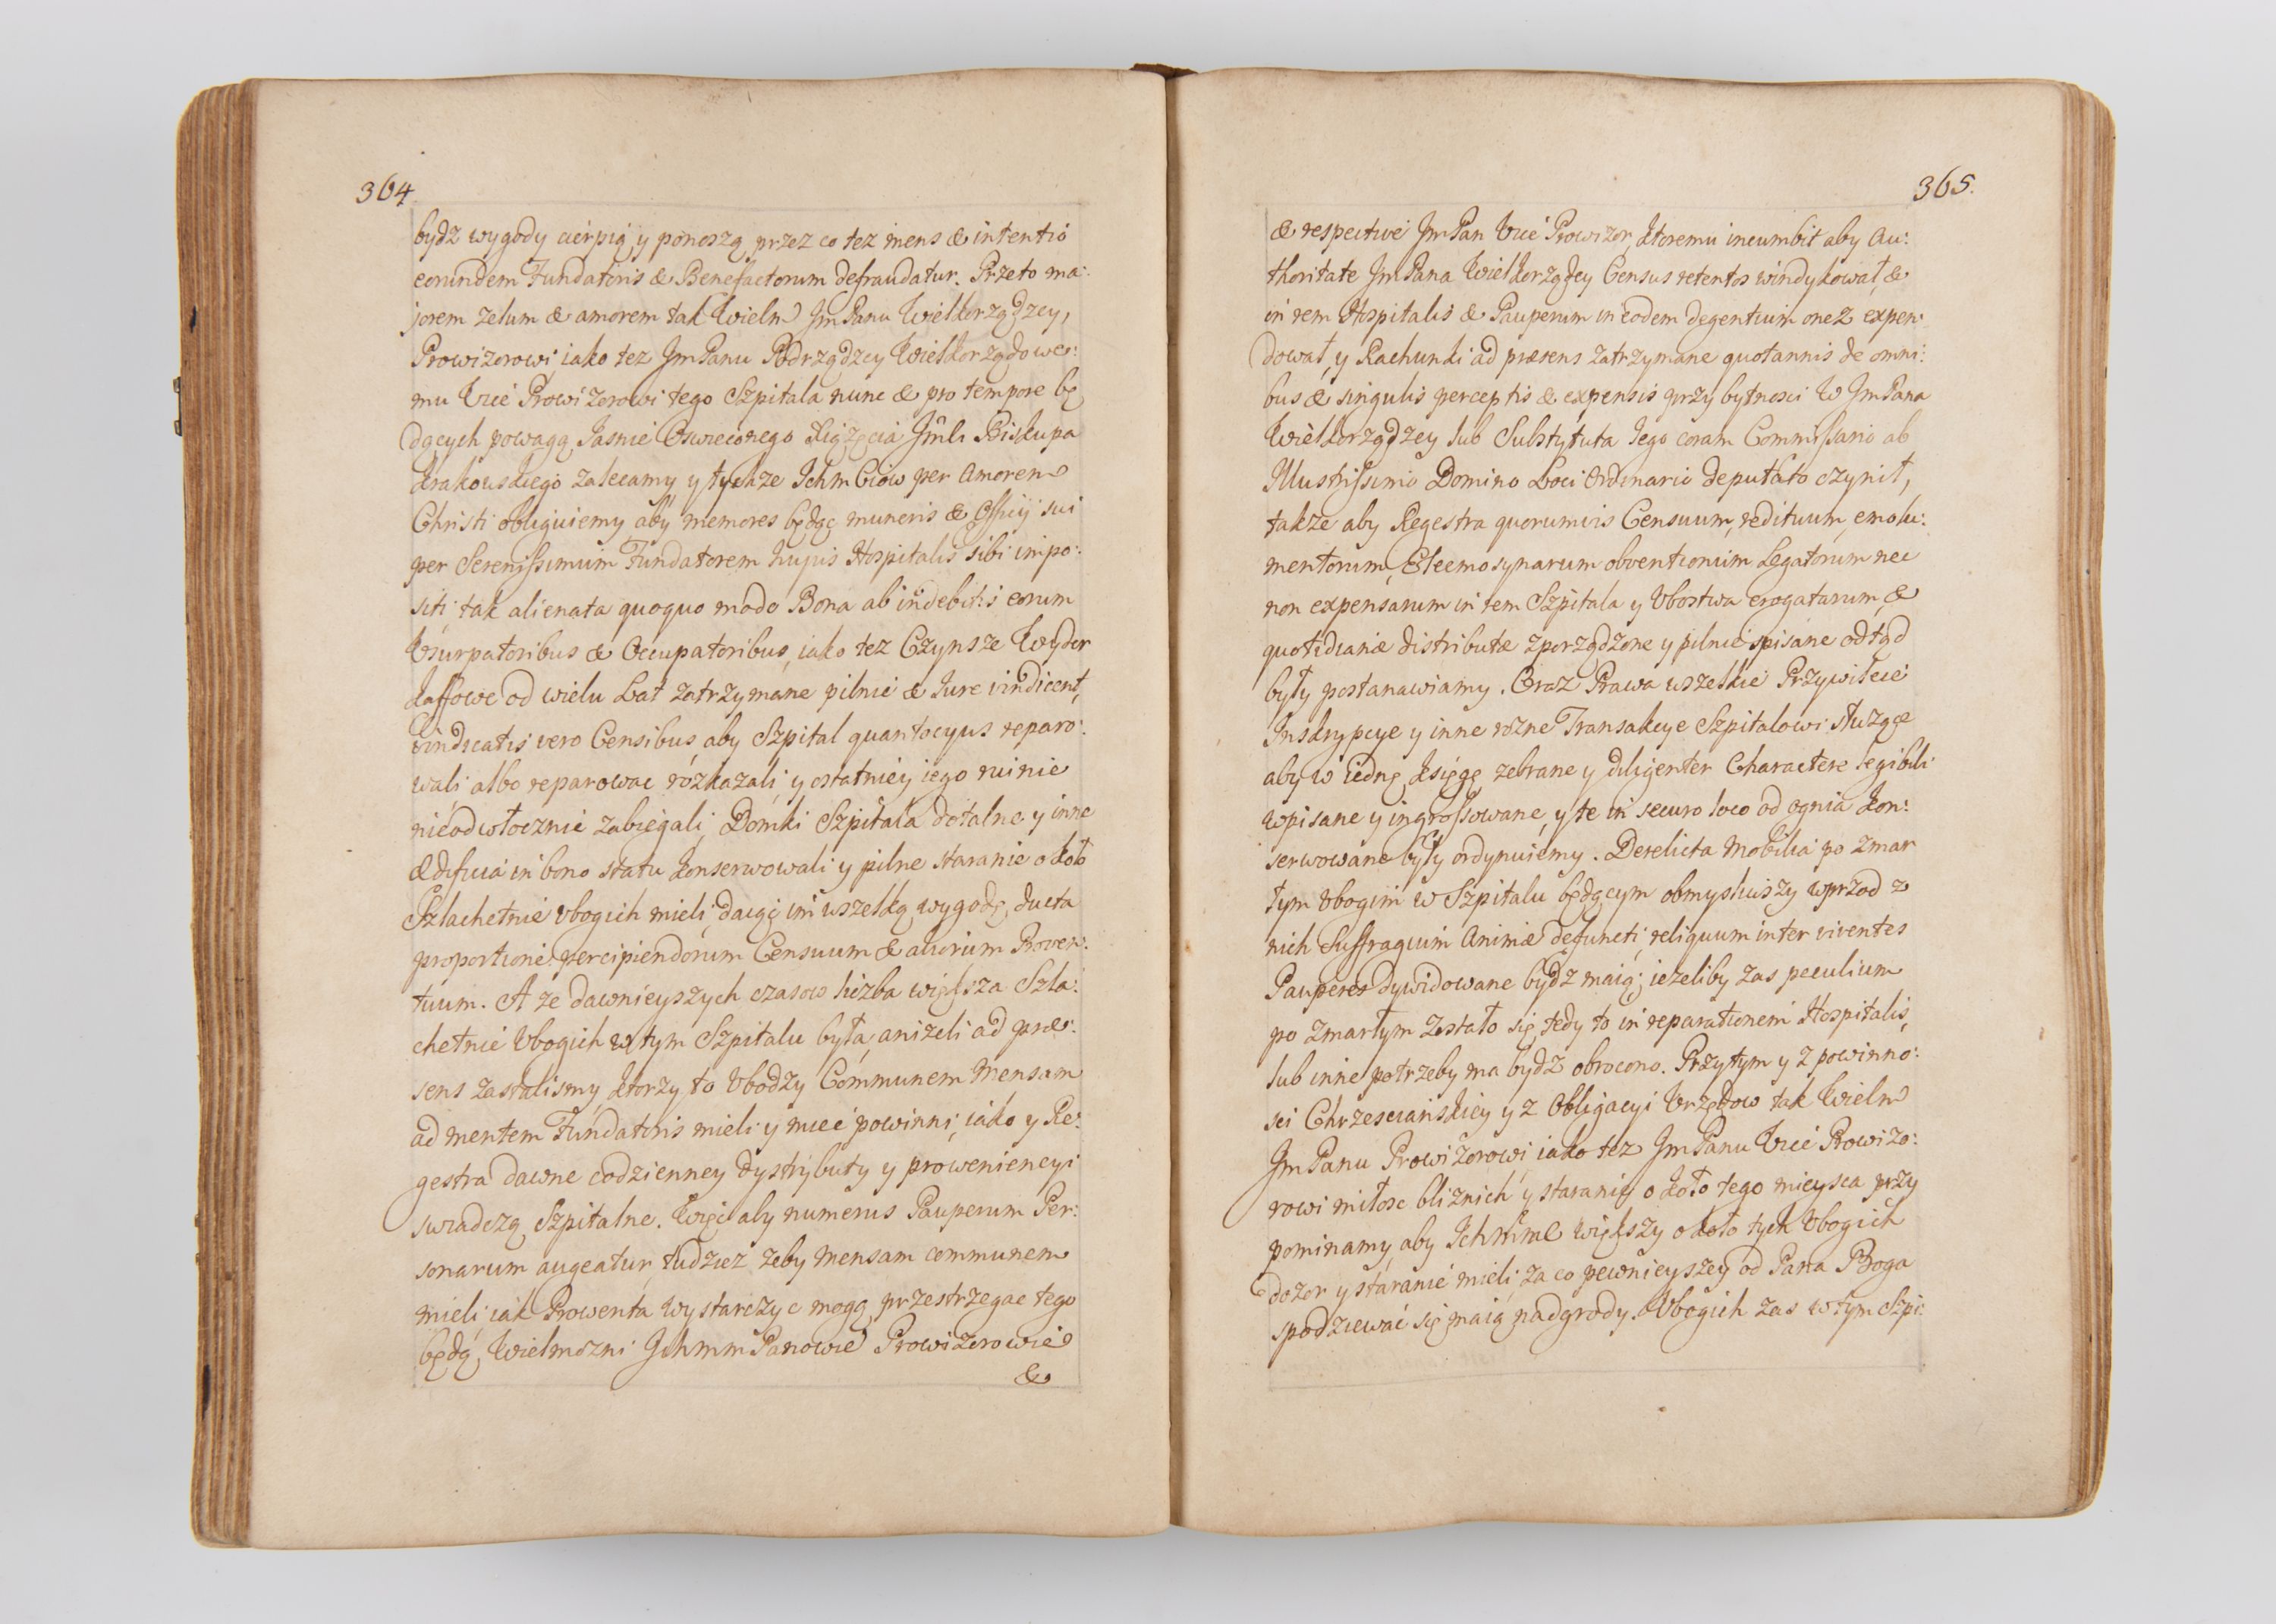 364
bydz wygody cierpią y ponoszą przez co tez mens & intentio
eorundem Fundatoris & Benefactorum defraudatur. Przeto ma:
jorem zelum & amorem tak Wielm Jm Panu Wielkorządzey,
Prowizorowi iako tez Jm Panu Podrządzcy Wielkorządowe:
mu Vice Prowizorowi tego Szpitala nunc & pro tempore bę
dących powagą Jasnie Oswieconego Xiążęcia Jmsci Biskupa
Krakowskiego zalecamy y tychze Ichm Ciow per Amorem
Christi obliguiemy aby memores będąc muneris & Officij sui
per Serenissimum Fundatorem hujus Hospitalis sibi impo:
siti, tak alienata quoquo modo Bona ab indebitis eorum
Usurpatoribus & Occupatoribus, iako tez Czynsze Wyder
kaffowe od wielu Lat zatrzymane pilnie & Jure vindicent,
vindicatis vero Censibus aby Szpital quantocyus reparo:
wali albo reparowac rozkazali, y ostatniey iego ruinie
nieodwłocznie zabiegali, Domki Szpitala dotalne y inne
ædificia in bono statu konserwowali y pilne staranie o koło
Szlachetnie Vbogich mieli, daiąc im wszelką wygodę, ducta
proportione percipiendorum Censuum & aliorum Proven:
tuum. A że dawnieyszych czasow liczba większa Szla:
chetnie Vbogich w tym Szpitalu była, anizeli ad præ:
sens zastalismy, ktorzy to Vbodzy Communem Mensam
ad mentem Fundatoris mieli y miec powinni, iako y Re:
gestra dawne codzienney dystrybuty y proweniencyi
swiadczą Szpitalne. Więc aby numerus Pauperum Per:
sonarum augeatur, tudziez zeby Mensam communem
mieli, iak Prowenta wystarczyc mogą, przestrzegac tego
będą, Wielmozni Ichmm Panowie Prowizorowie
&
365.
& respective Jm Pan Vice Prowizor, ktoremu incumbit aby Au:
thoritate Jm Pana Wielkorządzey Census retentos windykował, &
in rem Hospitalis & Pauperum in eodem degentium onez expen
dował, y Rachunki ad præsens zatrzymane quotannis de omni:
bus & singulis perceptis & expensis przy bytnosci W Jm Pana
Wielkorządzey lub Substytuta Iego coram Commissario ab
Illustrissimo Domino Loci Ordinario deputato czynił,
takze aby Regestra quorumvis Censuum, redituum, emolu:
mentorum, Eleemosynarum obventionum Legatorum nec
non expensarum in rem Szpitala y Vbostwa erogatarum, &
quotidianæ distributæ zporządzone y pilnie spisane odtąd
były postanawiamy. Oraz Prawa wszelkie Przywileie
Inskrypcye y inne rozne Transakcye Szpitalowi słuząe
aby w iednę księgę zebrane y diligenter Charactere legibili
wpisane y ingrossowane, y te in securo loco od ognia kon:
serwowane były ordynuiemy. Derelicta Mobilia po zmar
łym Vbogim w Szpitalu będącym obmysliwszy wprzod z
nich Suffragium Animæ defuncti, reliquum inter viventes
Pauperes dywidowane bydz maią; iezeliby zas peculium
po zmarłym zostało się, tedy to in reparationem Hospitalis,
lub inne potrzeby ma bydz obrocono. Przytym y z powinno:
sci Chrzesciańskiey y z Obligacyi Vrzędow tak Wielm
Jm Panu Prowizorowi iako tez Jm Panu Vice Prowizo:
rowi miłosc bliznich y staranie o koło tego mieysca przy
pominamy, aby większy o koło tych Vbogich
dozor y staranie mieli, za co pewnieyszey od Pana Boga
spodziewać się maią nadgrody. Vbogich zas w tym Szpi: